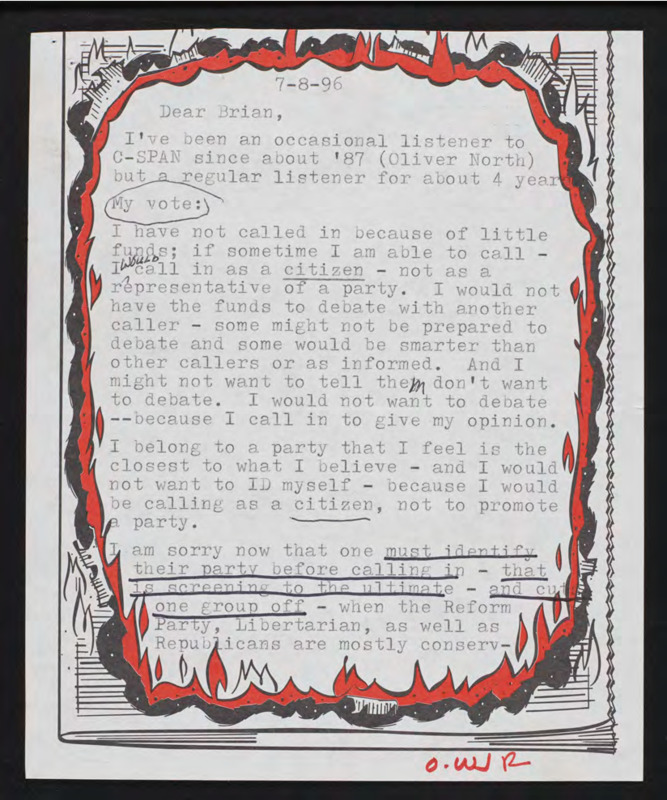 7-8-96
Dear Brian,
I've been an occasional listener to
C-SPAN since about '87 (Oliver North)
but a regular listener for about 4 year
My vote:
I have not called in because of little
funds; if sometime I am able to call -
I would call in as a citizen - not as a
representative of a party. I would not
have the funds to debate with another
caller - some might not be prepared to
debate and some would be smarter than
other callers or as informed. And I
might not want to tell them don't want
to debate. I would not want to debate
--because I call in to give my opinion.
I belong to a party that I feel is the
closest to what I believe - and I would
not want to ID myself - because I would
be calling as a citizen, not to promote
a party.
I am sorry now that one must identify
their party before calling in - that
is screening to the ultimate - and cut
one group off - when the Reform
Party, Libertarian, as well as
Republicans are mostly conserv-